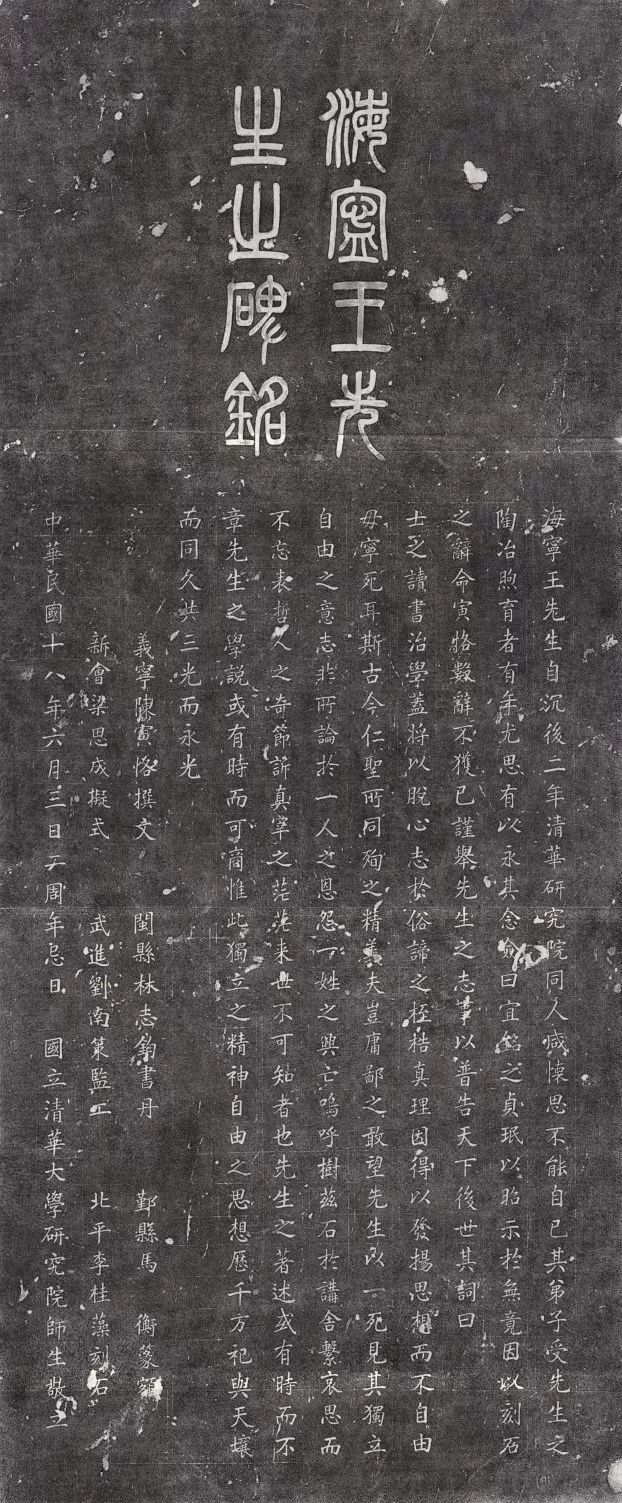 海寧王先
生之碑銘
海寧王先生自沉後二年清華研究院同人咸懷思不能自已其弟子受先生之
陶冶煦育者有年尤思有以永其念僉曰宜銘之貞珉以昭示於無竟因以刻石
之辭命寅恪數辭不獲已謹舉先生之志事以普告天下後世其詞曰
士之讀書治學蓋將以脫心志於俗諦之桎梏真理因得以發揚思想而不自由
毋寧死耳斯古今仁聖所同殉之精義夫豈庸鄙之敢望先生以一死見其獨立
自由之意志非所論於一人之恩怨一姓之興亡嗚呼樹茲石於講舍繫哀思而
不忘表哲人之奇節訴真宰之茫茫来世不可知者也先生之著述或有時而不
章先生之學説或有時而可商惟此獨立之精神自由之思想歷千万祀與天壤
而同久共三光而永光
義寧陳寅恪撰文 閩縣林志鈞書丹 鄞縣馬 衡篆額
新會梁思成擬式 武進劉南策監工 北平李桂藻刻石
中華民國十八年六月三日二周年忌日 國立清華大學研究院師生敬立